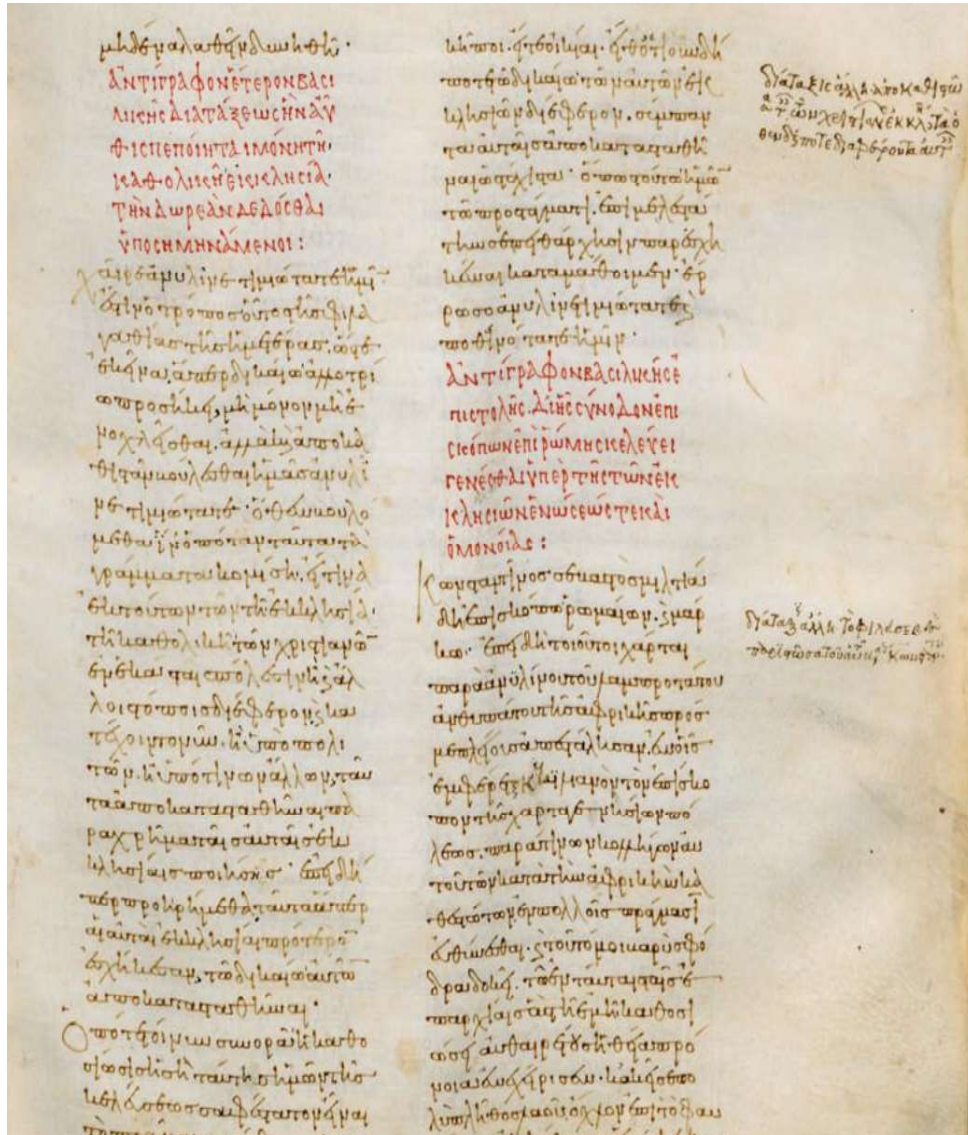 μηδένα λαθεῖν δυνηθῆ·
ἀντίγραφον ἕτερον βασι
λικῆς διατάξεως ἣν αὖ
θις πεποίηται μόνη τῆ
καθολικῆ ἐκκλησία
τὴν δωρεὰν δεδόσθαι
ὑποσημηνάμενοι:
χαῖρε ἀνυλῖνε τιμιώτατε ἡμῖν·
ἔστιν ὁ τρόπος οὗτος τῆς φιλα
γαθίας τῆς ἡμετέρας, ὥστε
ἐκεῖνα, ἅπερ δικαίω ἀλλοτρί
ω προσήκει, μὴ μόνον μὴ ἐ
νοχλεῖσθαι, ἀλλὰ καὶ ἀποκα
θιστᾶν βούλεσθαι ἡμᾶς ἀνυλῖ
νε τιμιώτατε· ὅθεν βουλό
μεθα ἵν' ὁπόταν ταῦτα τὰ
γράμματα κομίση, εἴ τινα
ἐκ τούτων τῶν τῆ ἐκκλησία
τῆ καθολικῆ τῶν χριστιανῶν
ἐν ἑκάσταις πόλεσιν ἢ καὶ ἄλ
λοις τόποις διέφερον, καὶ κα
τέχοιντο νῦν, ἢ ὑπὸ πολι
τῶν, ἢ ὑπό τινων ἄλλων, ταῦ
τα ἀποκατασταθῆναι πα
ραχρῆμα ταῖς αὐταῖς ἐκ
κλησίαις ποιήσης· ἐπειδή
περ προηρήμεθα ταῦτα ἅπερ
αἱ αὐταὶ ἐκκλησίαι πρότερον
ἐσχήκεσαν, τῶ δικαίω αὐτῶν
ἀποκατασταθῆναι·
Ὁπότε τοίνυν συνορᾶ ἡ καθο
σίωσις ἡ σὴ ταύτης ἡμῶν τῆς
κελεύσεως σαφέστατον εἶναι
κῆποι. εἴτε οἰκίαι. εἴθ' ὁτιουνδή
ποτε τῶ δικαίω τῶν αὐτῶν ἐκ
κλησιῶν διέφερον, σύμπαν
τα αὐταῖς ἀποκατασταθῆ
ναι ὡς τάχιστα· ὅπως τούτω ἡμῶν
τῶ προστάγματι. ἐπιμελεστά
την σε πειθάρχησιν παρεσχη
κέναι καταμάθοιμεν· ἔρ
ρωσο ἀνυλῖνε τιμιώτατε καὶ
ποθεινότατε ἡμῖν·
ἀντίγραφον βασιλικῆς ἐ
πιστολῆς. δι' ἧς σύνοδον ἐπι
σκόπων ἐπὶ ῥώμης κελεύει
γενέσθαι ὑπὲρ τῆς τῶν ἐκ
κλησιῶν ἑνώσεώς τε καὶ
ὁμονοίας:
Κωνσταντῖνος σεβαστὸς μιλτιά
δη ἐπισκόπω ῥωμαίων. καὶ μάρ
κω· ἐπειδὴ τοιοῦτοι χάρται
παρὰ ἀνυλίνου τοῦ λαμπροτάτου
ἀνθυπάτου τῆς ἀφρικῆς πρός
με πλείους ἀπεστάλησαν. ἐν οἷς
ἐμφέρεται καικιλιανὸν τὸν ἐπίσκο
πον τῆς χαρταγενησίων πό
λεως. παρά τινων κολλήγων αὐ
τοῦ τῶν κατὰ τὴν ἀφρικὴν κα
θεστώτων, ἐν πολλοῖς πράγμασιν
εὐθύνεσθαι. καὶ τοῦτό μοι βαρὺ σφό
δρα δοκεῖ. τὸ ἐν ταύταις ταῖς ἐ
παρχίαις ἃς τῆ ἐμῆ καθοσι
ώσει αὐθαιρέτως ἡ θεία πρό
νοια ἐνεχείρισεν. κἀκεῖσε πο
λὺ πλῆθος λαοῦ ὄχλον ἐπὶ τὸ φαυ